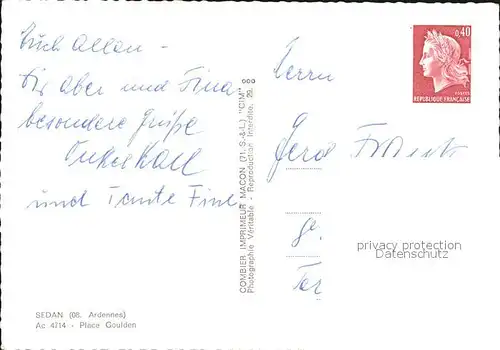 Euch allen -
Dir aber und Tina
besondere Grüße
Onkel Karl
und Tante Fine
Herrn
Gerd
COMBIER IMPRIMEUR MACON (71. S.-&-L.) "CIM"
Photographie Véritable - Reproduction Interdite. 29.
0,40
REPUBLIQUE FRANÇAISE
privacy protection
Datenschutz
SEDAN (08. Ardennes)
Ac 4714 - Place Goulden